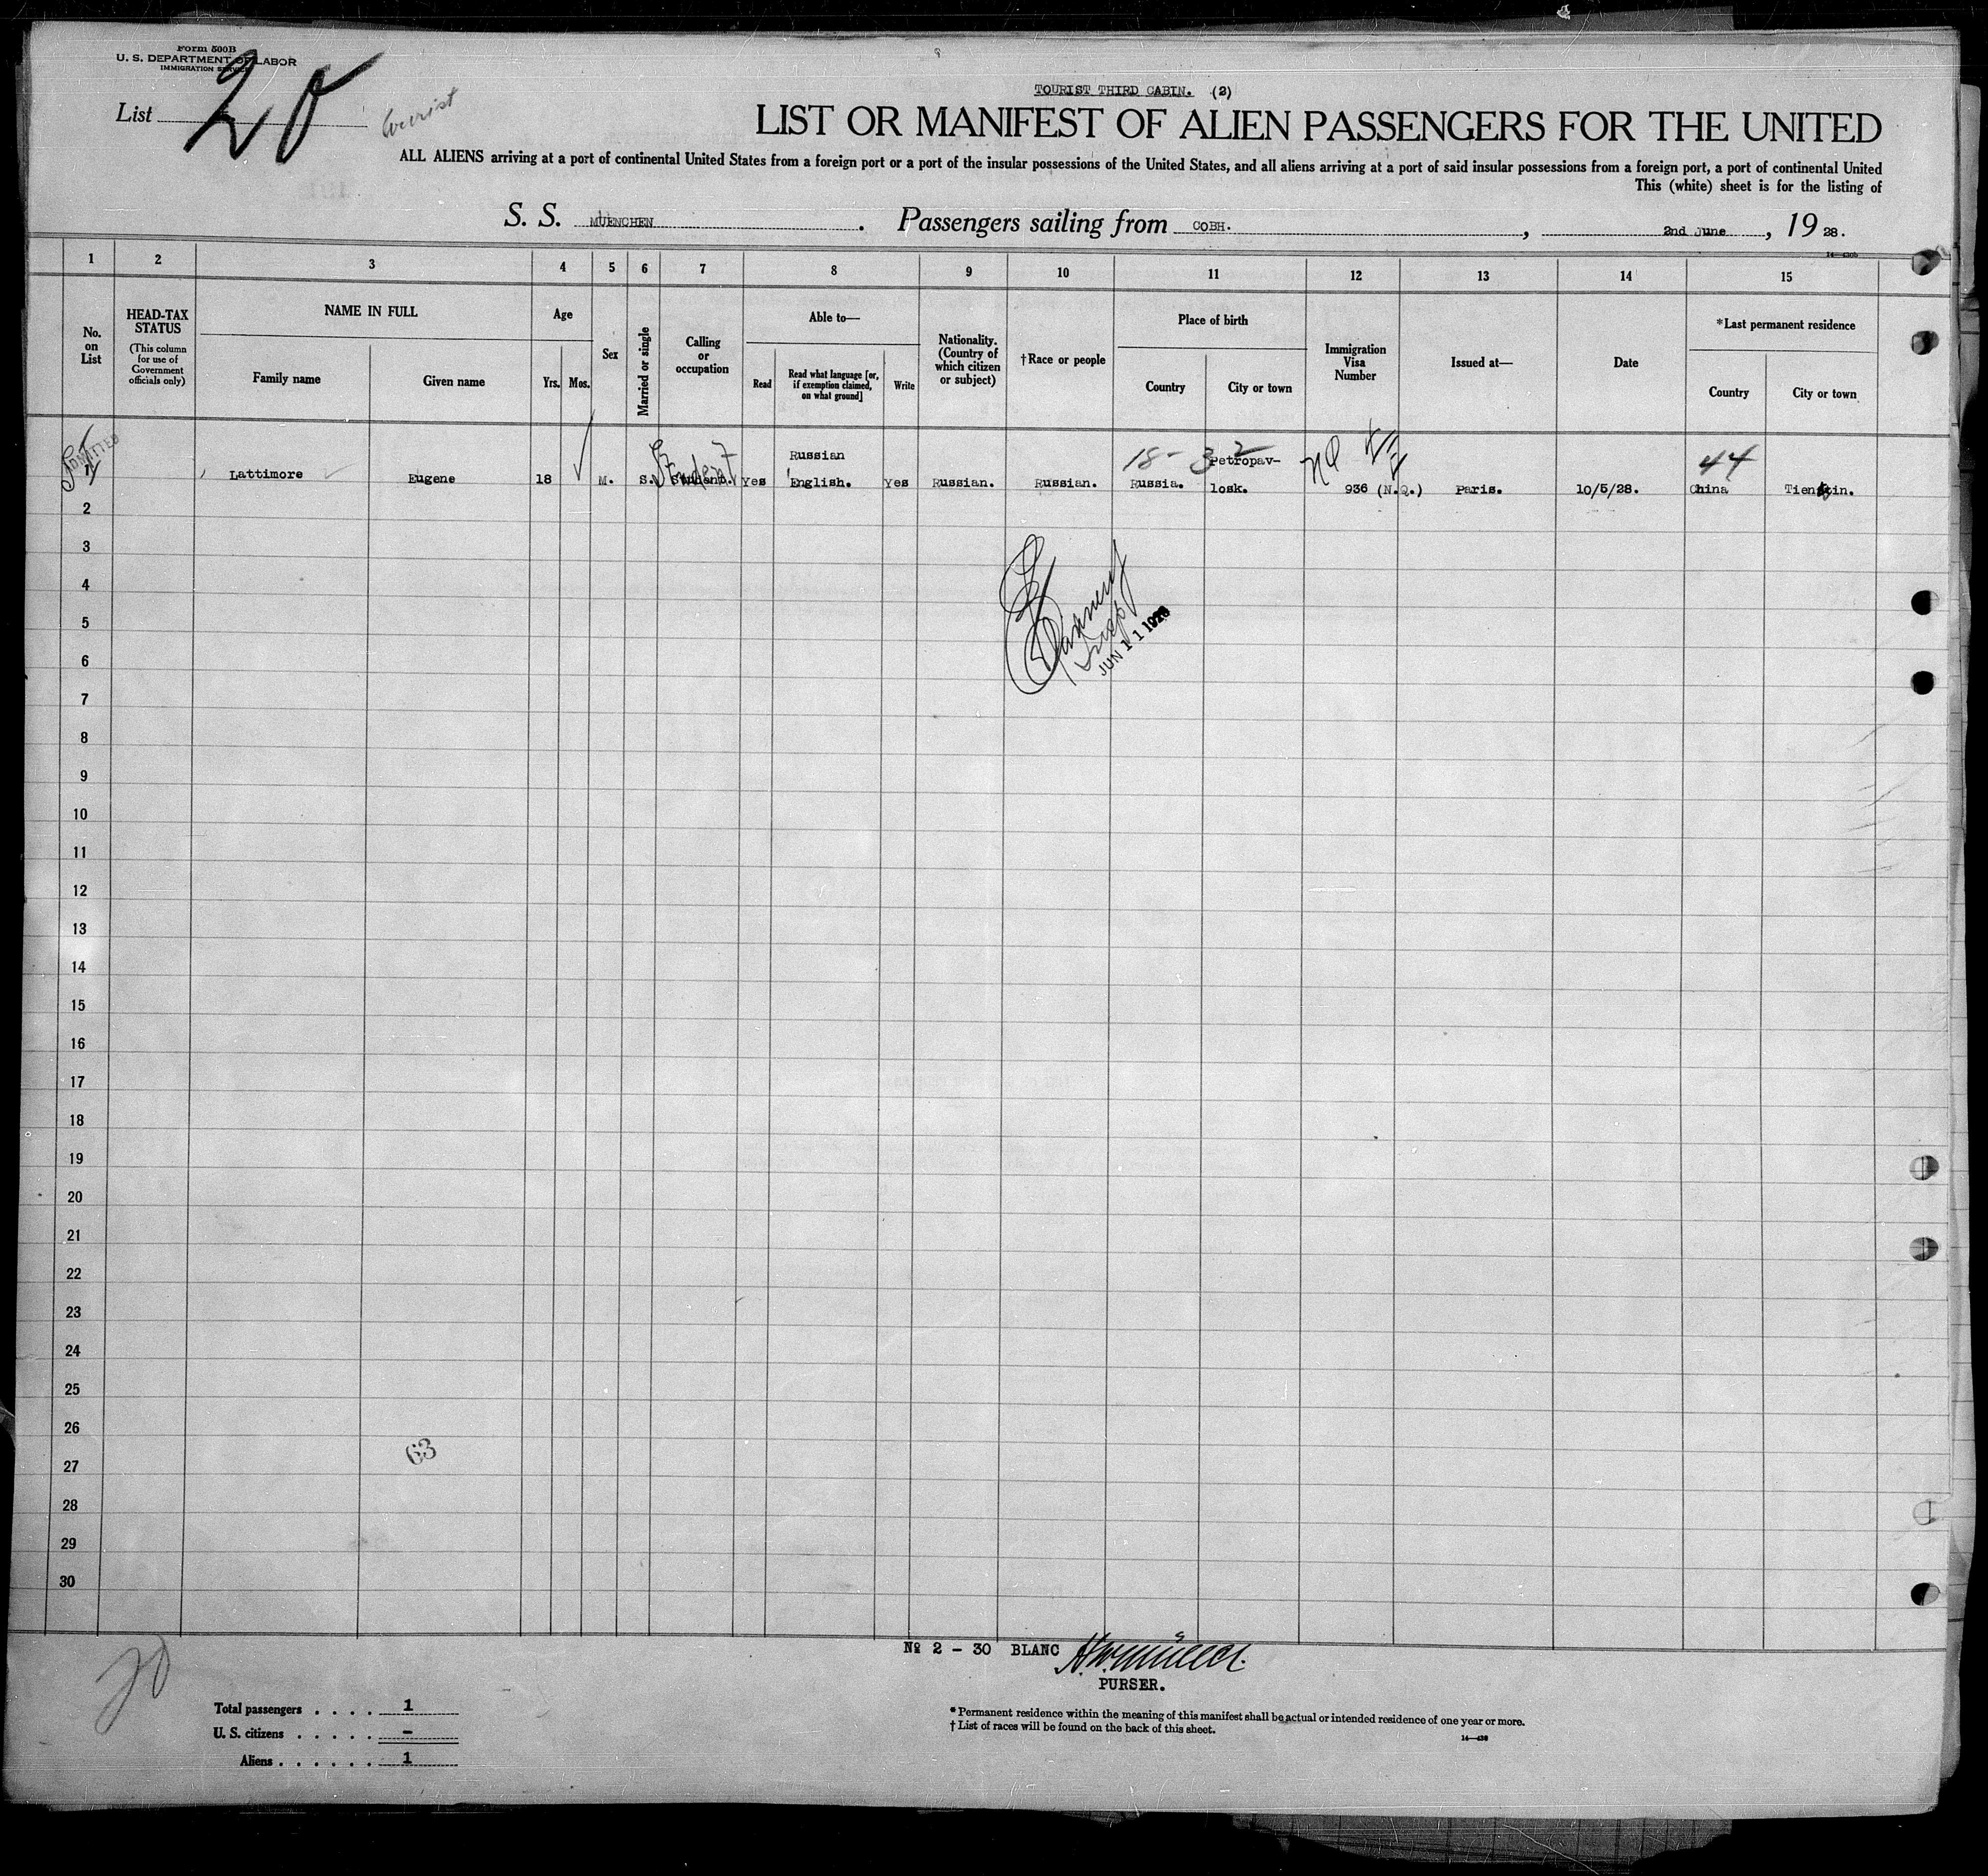 Form 500B
U. S. DEPARTMENT OF LABOR
IMMIGRATION SERVICE
List 20 Tourist
TOURIST THIRD CABIN. (2)
LIST OR MANIFEST OF ALIEN PASSENGERS FOR THE UNITED
ALL ALIENS arriving at a port of continental United States from a foreign port or a port of the insular possessions of the United States, and all aliens arriving at a port of said insular possessions from a foreign port, a port of continental United
This (white) sheet is for the listing of
S. S. MUENCHEN. Passengers sailing from COBH., 2nd June, 19 28.
14—430b
1 2 3 4 5 6 7 8 9 10 11 12 13 14 15
No. on List
HEAD-TAX STATUS
(This column for use of Government officials only)
NAME IN FULL
Family name
Given name
Age
Yrs. Mos.
Sex
Married or single
Calling or occupation
Able to—
Read
Read what language [or, if exemption claimed, on what ground]
Write
Nationality. (Country of which citizen or subject)
†Race or people
Place of birth
Country
City or town
Immigration Visa Number
Issued at—
Date
*Last permanent residence
Country
City or town
ADMITTED
18- 3 2
44
Student
1 Lattimore Eugene 18 M. S. Student. Yes Russian English. Yes Russian. Russian. Russia. Petropav-losk. 936 (N.Q.) Paris. 10/5/28. China Tientsin.
2
3
4
5
6
JUN 11 1928
7
8
9
10
11
12
13
14
15
16
17
18
19
20
21
22
23
24
25
26
63
27
28
29
30
20
No 2 - 30 BLANC
PURSER.
Total passengers . . . . 1
U. S. citizens . . . . . -
Aliens . . . . . . 1
* Permanent residence within the meaning of this manifest shall be actual or intended residence of one year or more.
† List of races will be found on the back of this sheet.
14—430